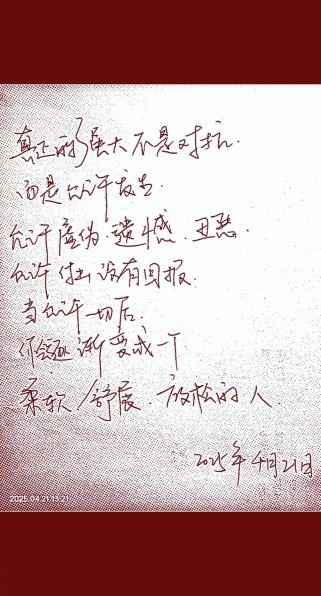 真正的强大不是对抗.
而是允许发生.
允许虚伪.遗憾.丑恶.
允许付出没有回报.
当允许一切后.
你会逐渐变成一个
柔软/舒展.放松的人
2025年4月21日
2025.04.21 15:21